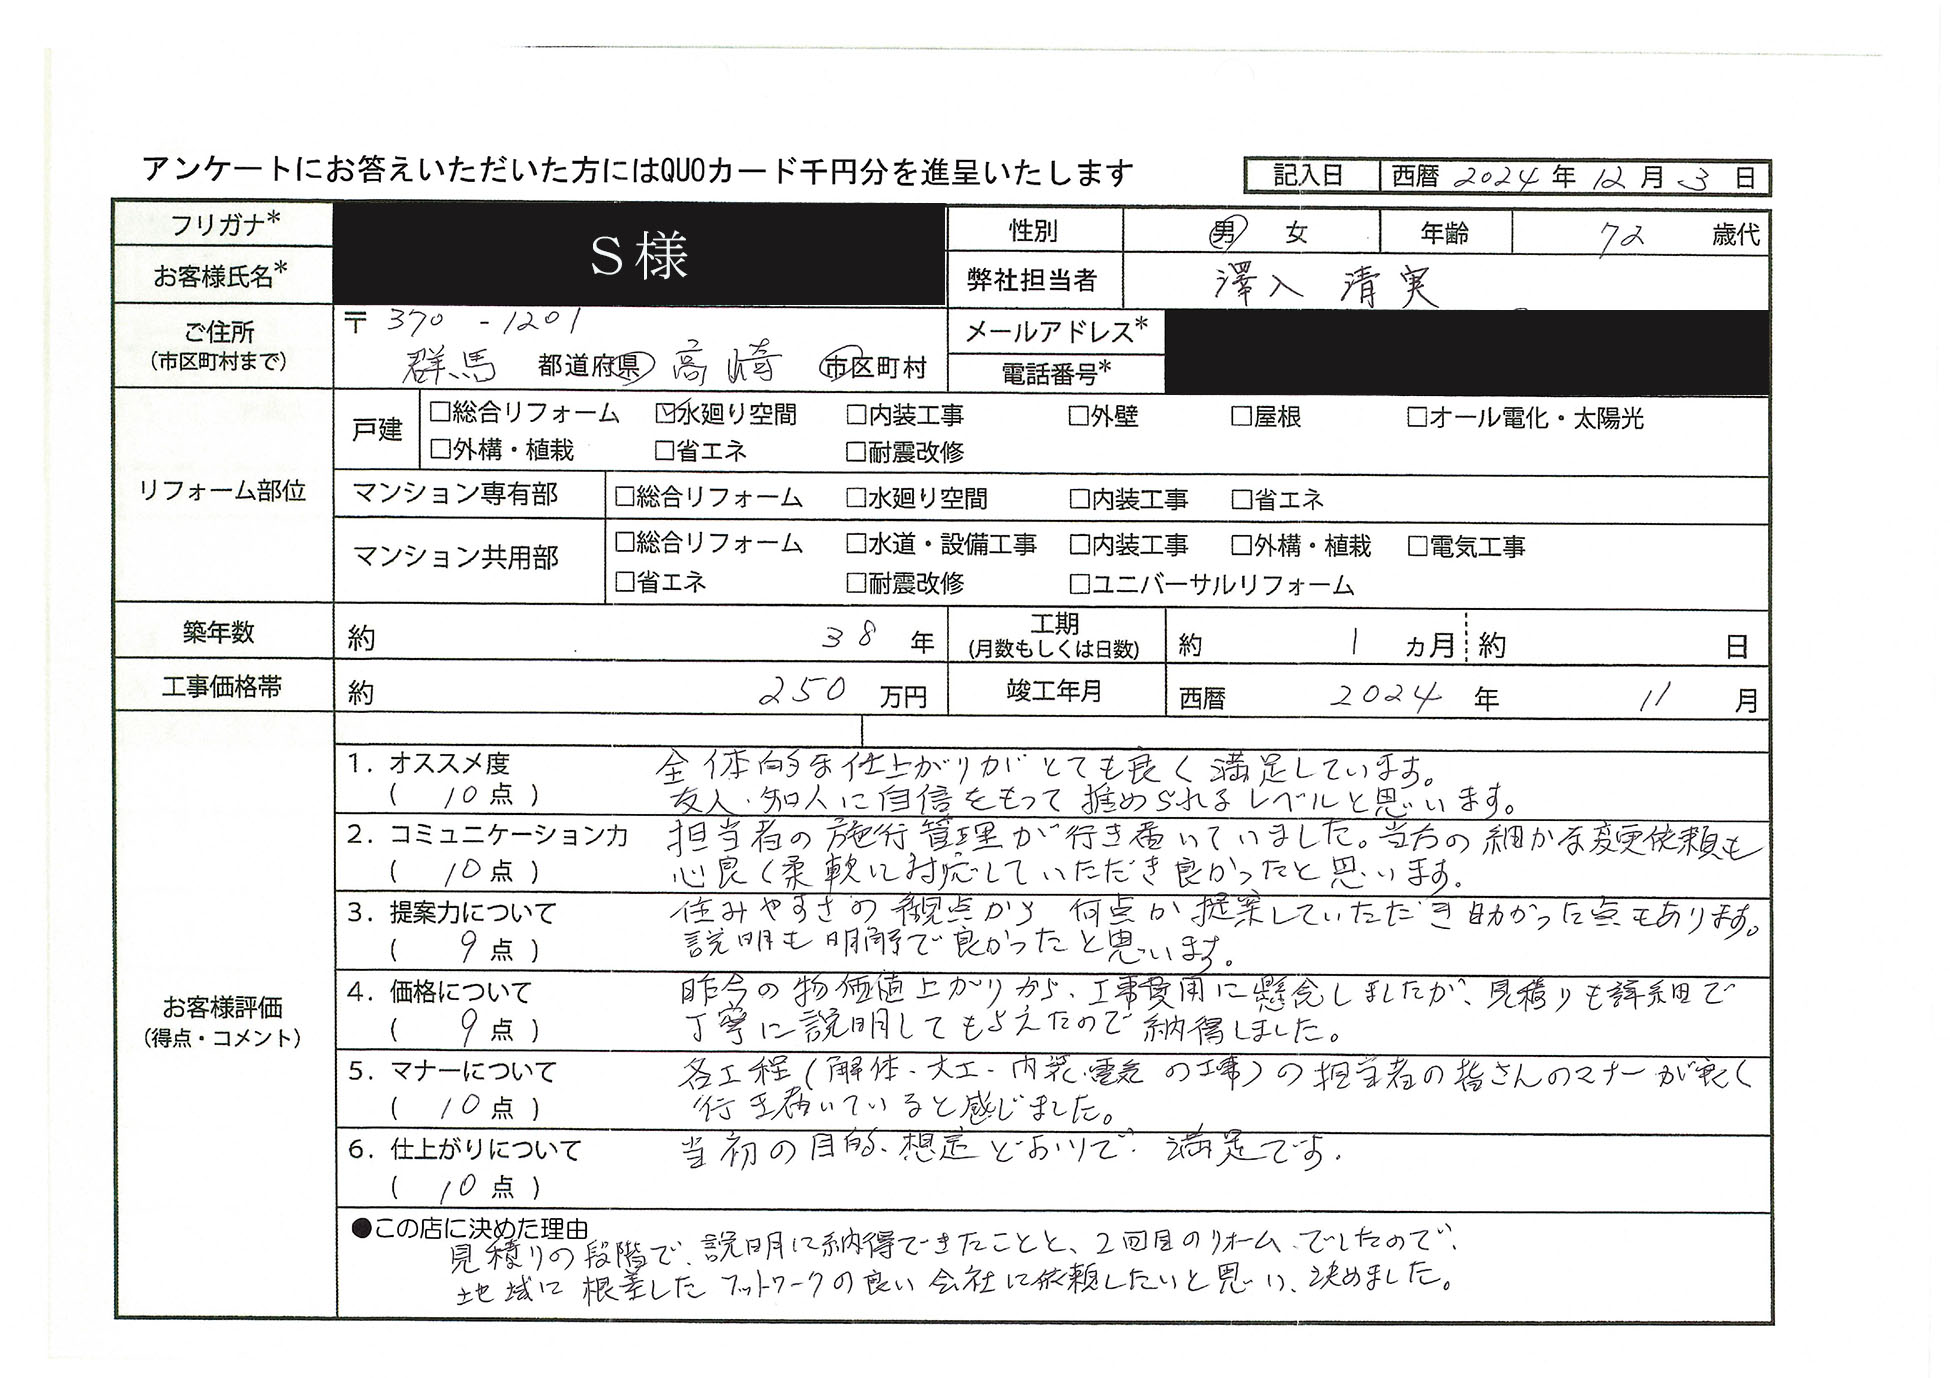 アンケートにお答えいただいた方にはQUOカード千円分を進呈いたします
記入日 西暦 2024 年 12 月 3 日
フリガナ* S様 性別 男 女 年齢 72 歳代
お客様氏名* 弊社担当者 澤入 清実
ご住所 〒 370 - 1201 メールアドレス*
(市区町村まで) 群馬 都道府県 高崎 市区町村 電話番号*
リフォーム部位
戸建 □総合リフォーム ☑水廻り空間 □内装工事 □外壁 □屋根 □オール電化・太陽光
□外構・植栽 □省エネ □耐震改修
マンション専有部 □総合リフォーム □水廻り空間 □内装工事 □省エネ
マンション共用部 □総合リフォーム □水道・設備工事 □内装工事 □外構・植栽 □電気工事
□省エネ □耐震改修 □ユニバーサルリフォーム
築年数 約 38 年 工期 (月数もしくは日数) 約 1 ヵ月 約 日
工事価格帯 約 250 万円 竣工年月 西暦 2024 年 11 月
お客様評価
(得点・コメント)
1. オススメ度 全体的な仕上がりがとても良く満足しています。
( 10 点 ) 友人・知人に自信をもって推められるレベルと思います。
2. コミュニケーション力 担当者の施行管理が行き届いていました。当方の細かな変更依頼も
( 10 点 ) 心良く柔軟に対応していただき良かったと思います。
3. 提案力について 住みやすさの観点から何点か提案していただき助かった点もあります。
( 9 点 ) 説明も明解で良かったと思います。
4. 価格について 昨今の物価値上がりから、工事費用に懸念しましたが、見積りも詳細で
( 9 点 ) 丁寧に説明してもらえたので納得しました。
5. マナーについて 各工程(解体・大工・内装・電気の工事)の担当者の皆さんのマナーが良く
( 10 点 ) 行き届いていると感じました。
6. 仕上がりについて 当初の目的、想定どおりで満足です.
( 10 点 )
●この店に決めた理由
見積りの段階で、説明に納得できたことと、2回目のリォーム、でしたので、
地域に根差したフットワークの良い会社に依頼したいと思い、決めました。